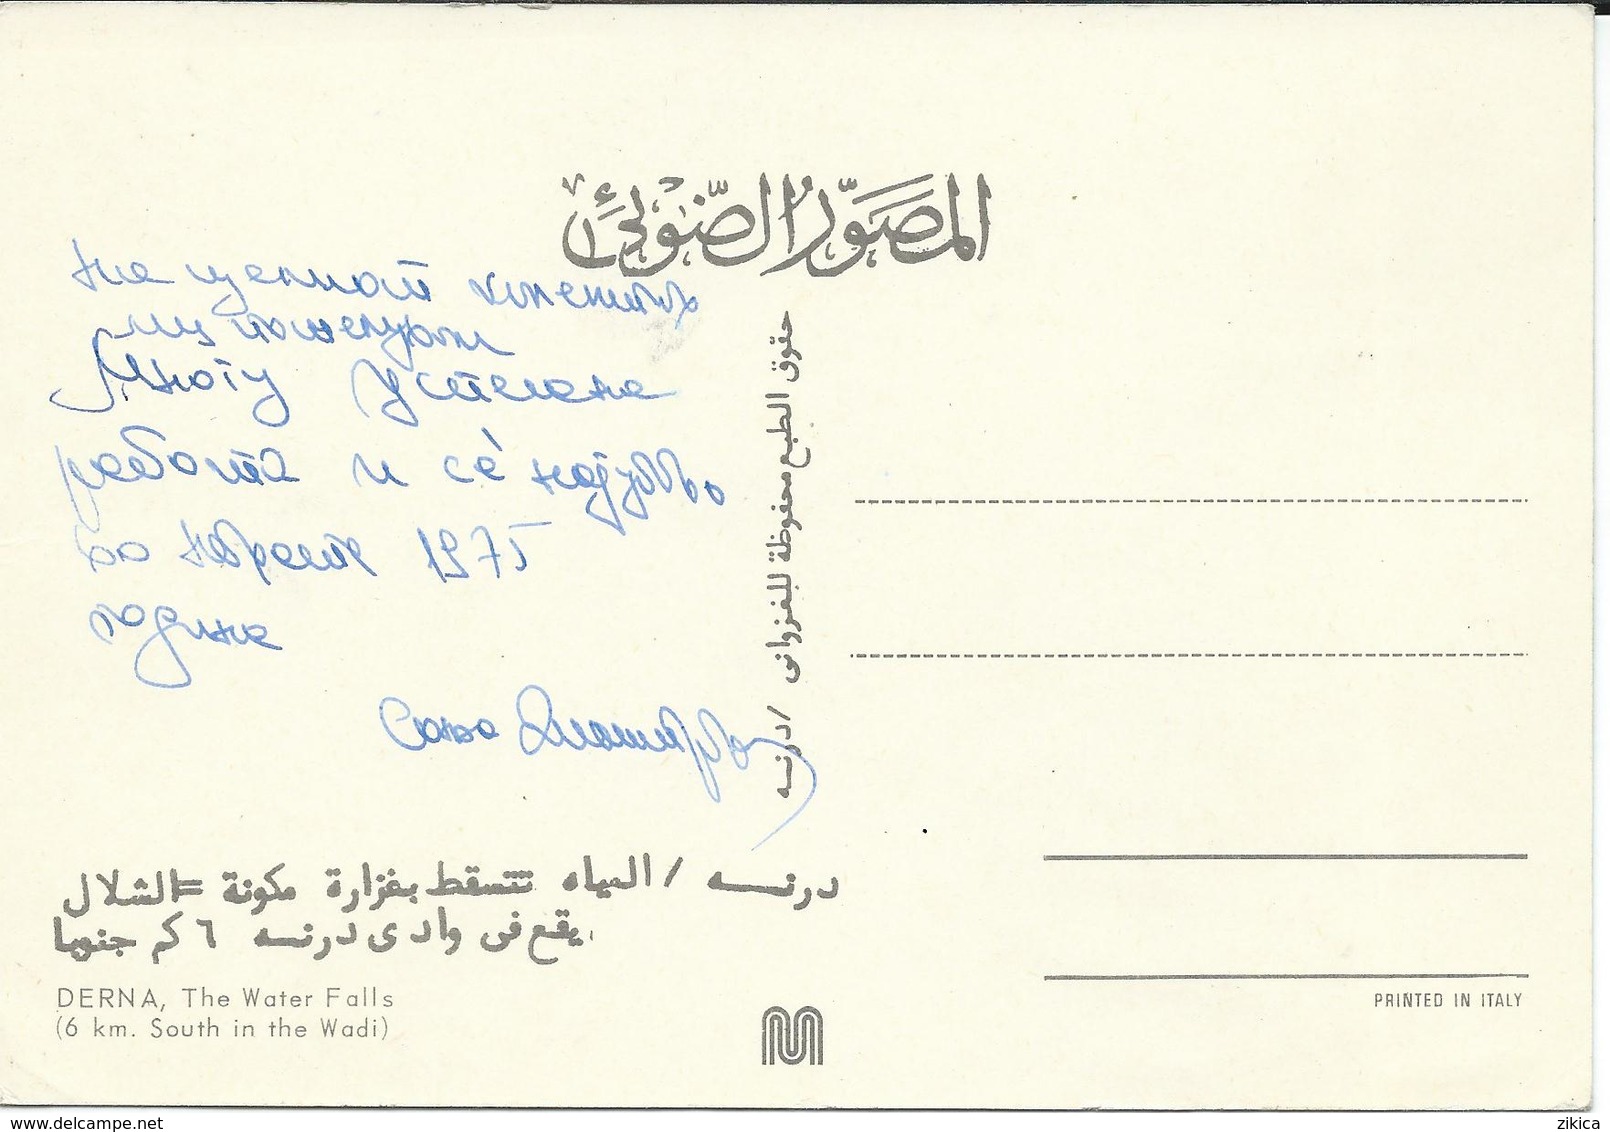 المصوّر الضوئي
на целиот колектив
му посакувам
Многу Успешна
работа и сé најубаво
во новата 1975
година
حقوق الطبع محفوظة للغزواني / درنــه
درنــه / المياه تتسقط بغزارة مكونة الشلال
يقع في وادي درنــه ٦ كم جنوبا
DERNA, The Water Falls
(6 km. South in the Wadi)
PRINTED IN ITALY
www.delcampe.net
zikica